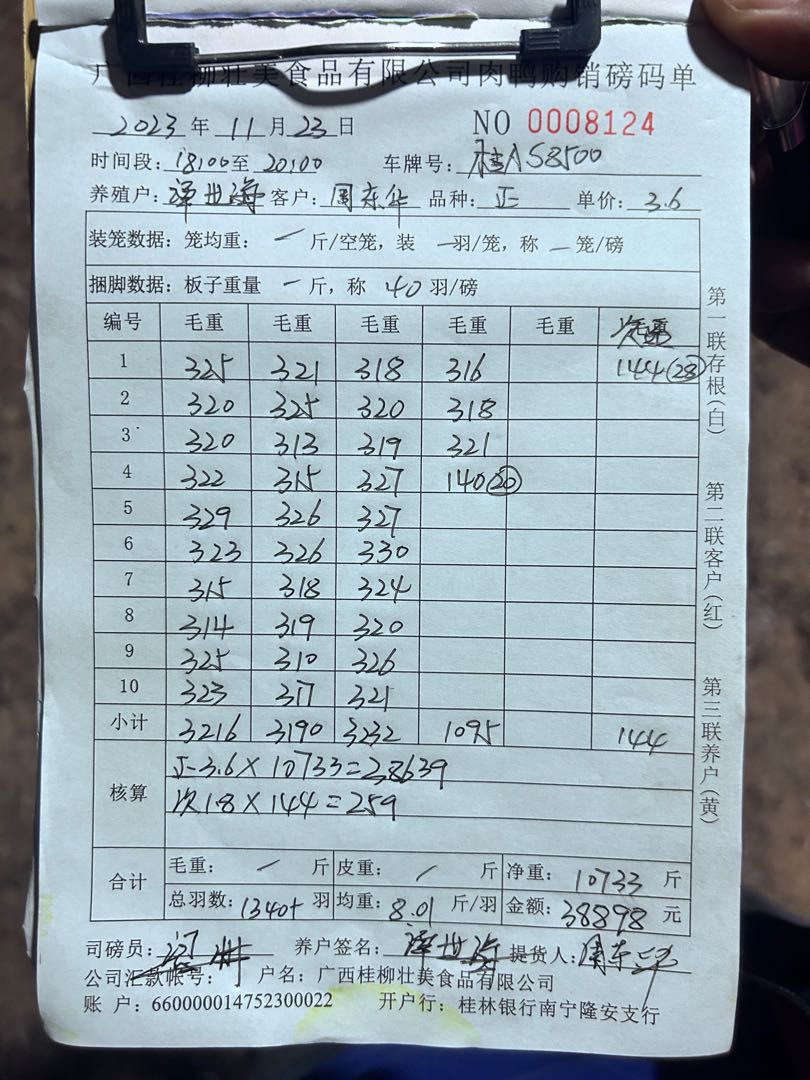 广西桂柳壮美食品有限公司肉鸭购销磅码单
2023 年 11 月 23 日 NO 0008124
时间段: 18:00 至 20:00 车牌号: 桂AS8500
养殖户: 谭世海 客户: 周东华 品种: 正一 单价: 3.6
装笼数据: 笼均重: 一 斤/空笼, 装 一 羽/笼, 称 一 笼/磅
捆脚数据: 板子重量 一 斤, 称 40 羽/磅
编号 毛重 毛重 毛重 毛重 毛重
1 325 321 318 316 144(28)
2 320 325 320 318
3 320 313 319 321
4 322 315 327 140(20)
5 329 326 327
6 323 326 330
7 315 318 324
8 314 319 320
9 325 310 326
10 323 317 321
小计 3216 3190 3232 1095 144
核算
正一3.6×10733=38639
次1.8×144=259
合计
毛重: / 斤 皮重: / 斤 净重: 10733 斤
总羽数: 1340+ 羽 均重: 8.01 斤/羽 金额: 38898 元
司磅员: 养户签名: 谭世海 提货人: 周东华
公司汇款帐号: 户名: 广西桂柳壮美食品有限公司
账 户: 660000014752300022 开户行: 桂林银行南宁隆安支行
第一联存根(白)
第二联客户(红)
第三联养户(黄)